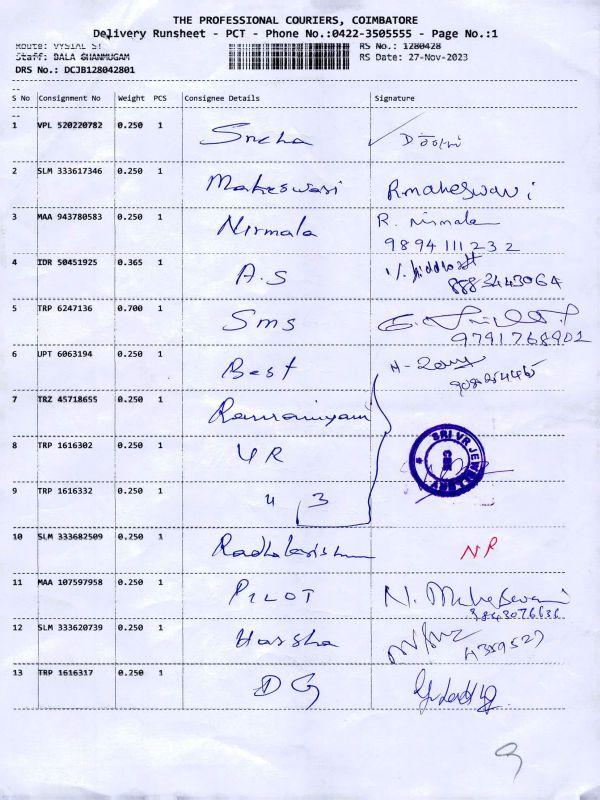 THE PROFESSIONAL COURIERS, COIMBATORE
Delivery Runsheet - PCT - Phone No.:0422-3505555 - Page No.:1
Route: VYSIAL ST RS No.: 1280428
Staff: BALA SHANMUGAM RS Date: 27-Nov-2023
DRS No.: DCJB128042801
--
S No Consignment No Weight PCS Consignee Details Signature
--
1 VPL 520220782 0.250 1 Sneha
2 SLM 333617346 0.250 1 Maheswari R.maheswari
3 MAA 943780583 0.250 1 Nirmala R. Nirmala
9894111232
4 IDR 50451925 0.365 1 A.S
8883443064
5 TRP 6247136 0.700 1 Sms
9791768902
6 UPT 6063194 0.250 1 Best
7 TRZ 45718655 0.250 1
8 TRP 1616302 0.250 1 VR SRI VR JEWELLERY
9 TRP 1616332 0.250 1 " 3
10 SLM 333682509 0.250 1 Radhakrishn NR
11 MAA 107597958 0.250 1 PILOT N. Maheswari
9843076636
12 SLM 333620739 0.250 1 Harsha
13 TRP 1616317 0.250 1 DG
9